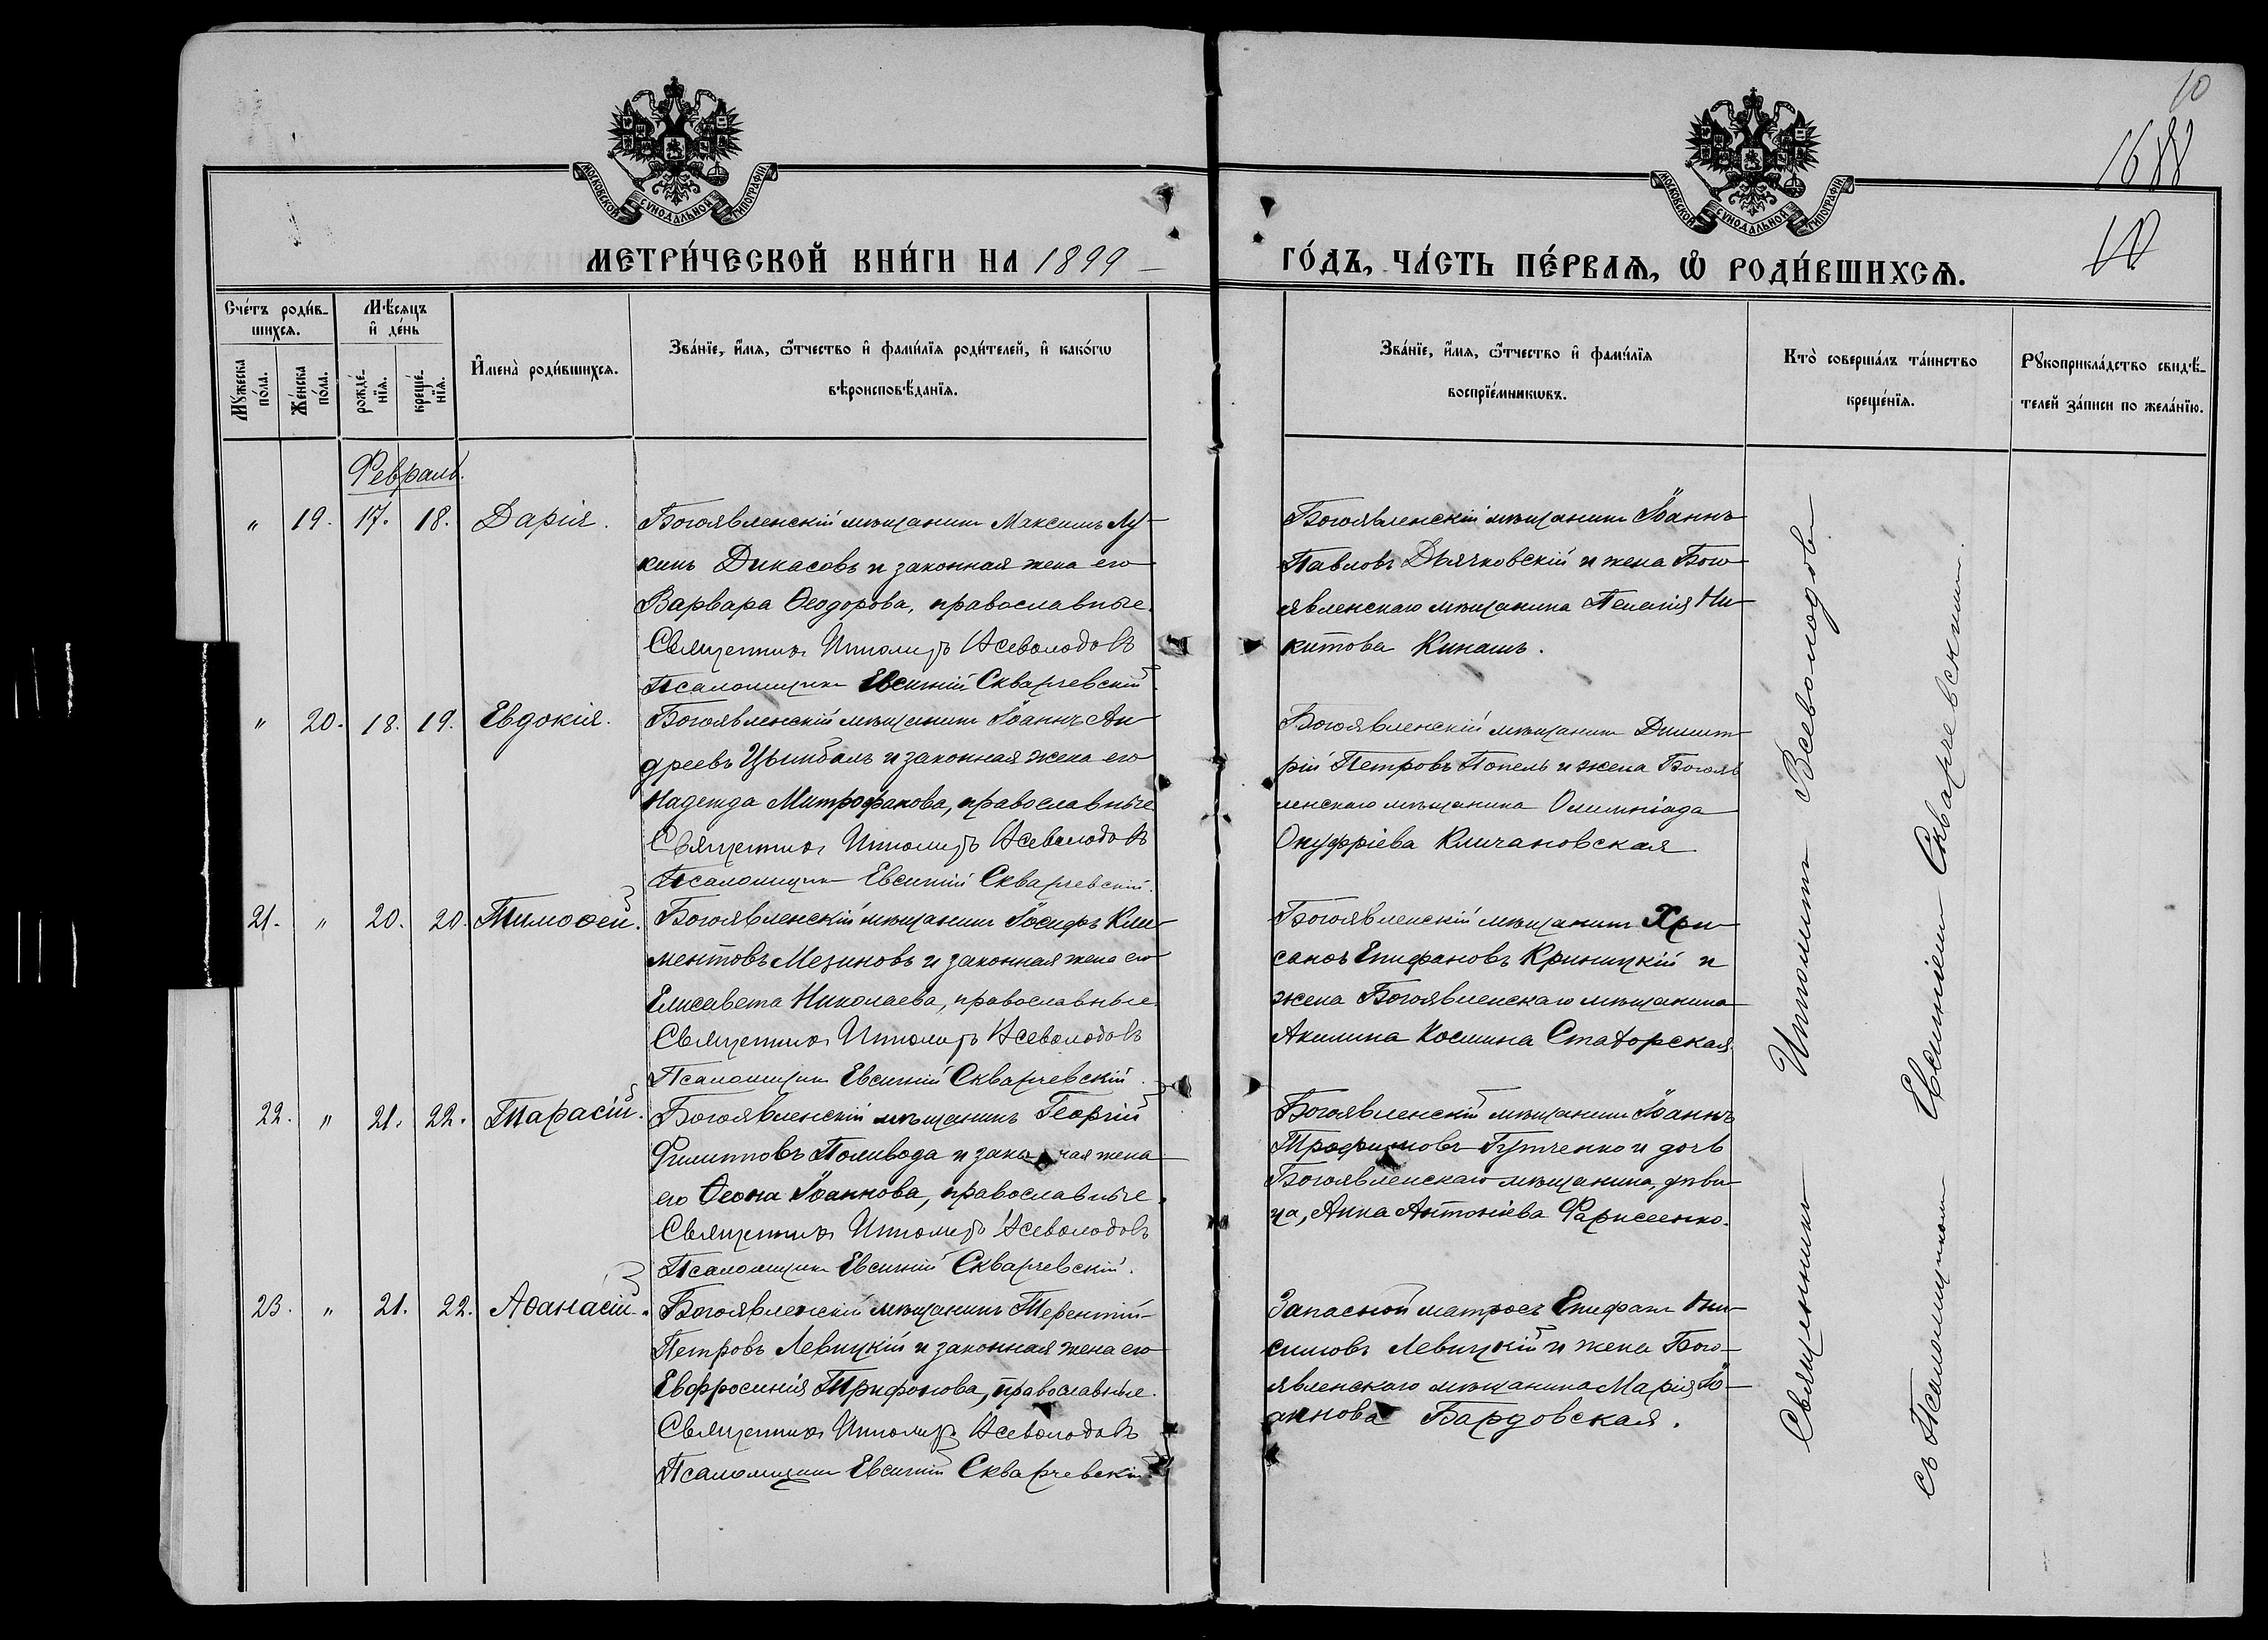 10
1688
10
МОСКОВСКОЙ СѴНОДАЛЬНОЙ ТИПОГРАФІИ
МОСКОВСКОЙ СѴНОДАЛЬНОЙ ТИПОГРАФІИ
МЕТРИ́ЧЕСКОЙ КНИ́ГИ НА 1899
ГО́ДЪ, ЧА́СТЬ ПЕ́РВАѦ, Ѡ РОДИ́ВШИХСѦ.
Сче́тъ роди́в-
шихсѧ.
Мꙋ́жеска по́ла.
Же́нска по́ла.
Мѣ́сѧцъ
и҆ де́нь
рожде́-
нїѧ.
креще́-
нїѧ.
И҆мена̀ роди́вшихсѧ.
Зва́нїе, и҆́мѧ, ѻ҆́тчество и҆ фами́лїѧ роди́телей, и҆ како́гѡ
вѣроисповѣ́данїѧ.
Зва́нїе, и҆́мѧ, ѻ҆́тчество и҆ фами́лїѧ
воспрїе́мникѡвъ.
Кто̀ соверша́лъ та́инство
креще́нїѧ.
Рꙋкоприкла́дство свидѣ́-
телей за́писи по жела́нїю.
Февраль.
" 19. 17. 18. Дарія.
Богоявленскій мѣщанинъ Максимъ Лу-
кинъ Дикасовъ и законная жена его
Варвара Ѳеодорова, православные.
Священникъ Ипполитъ Всеволодовъ
Псаломщикъ Евсигній Скваржевскій
Богоявленскій мѣщанинъ Іоаннъ
Павловъ Дьячковскій и жена Бого-
явленскаго мѣщанина Пелагія Ни-
китова Кинашъ.
" 20. 18. 19. Евдокія.
Богоявленскій мѣщанинъ Іоаннъ Ан-
дреевъ Цымбалъ и законная жена его
Надежда Митрофанова, православные
Священникъ Ипполитъ Всеволодовъ
Псаломщикъ Евсигній Скваржевскій.
Богоявленскій мѣщанинъ Димит-
рій Петровъ Попель и жена Богояв
ленскаго мѣщанина Олимпіада
Онуфріева Кличановская
21. " 20. 20. Тимоѳей.
Богоявленскій мѣщанинъ Іосифъ Кли-
ментовъ Мезиновъ и законная жена его
Елисавета Николаева, православные.
Священникъ Ипполитъ Всеволодовъ
Псаломщикъ Евсигній Скваржевскій.
Богоявленскій мѣщанинъ Хри-
санѳъ Епифановъ Криницкій и
жена Богоявленскаго мѣщанина
Акилина Космина Статорская.
22. " 21. 22. Тарасій.
Богоявленскій мѣщанинъ Георгій
Филипповъ Поливода и законная жена
его Ѳеона Іоаннова, православные.
Священникъ Ипполитъ Всеволодовъ
Псаломщикъ Евсигній Скваржевскій.
Богоявленскій мѣщанинъ Іоаннъ
Трофимовъ Гутченко и дочь
Богоявленскаго мѣщанина, дѣви-
ца, Анна Антоніева Фарисеенко.
23. " 21. 22. Аѳанасій.
Богоявленскій мѣщанинъ Терентій
Петровъ Левицкій и законная жена его
Евфросинія Трифонова, православные.
Священникъ Ипполитъ Всеволодовъ
Псаломщикъ Евсигній Скваржевскій
Запасной матросъ Епифанъ Они-
симовъ Левицкій и жена Бого-
явленскаго мѣщанина Марія Іо-
аннова Бардовская.
Священникъ Ипполитъ Всеволодовъ
съ Псаломщикомъ Евсигніемъ Скваржевскимъ.